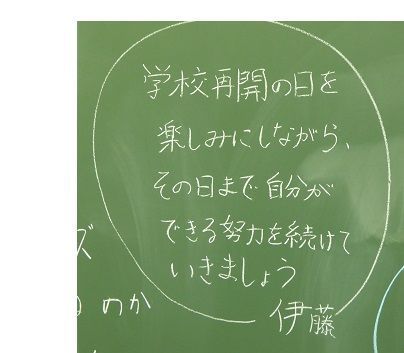 学校再開の日を
楽しみにしながら、
その日まで自分が
できる努力を続けて
いきましょう
伊藤
ズ
のか